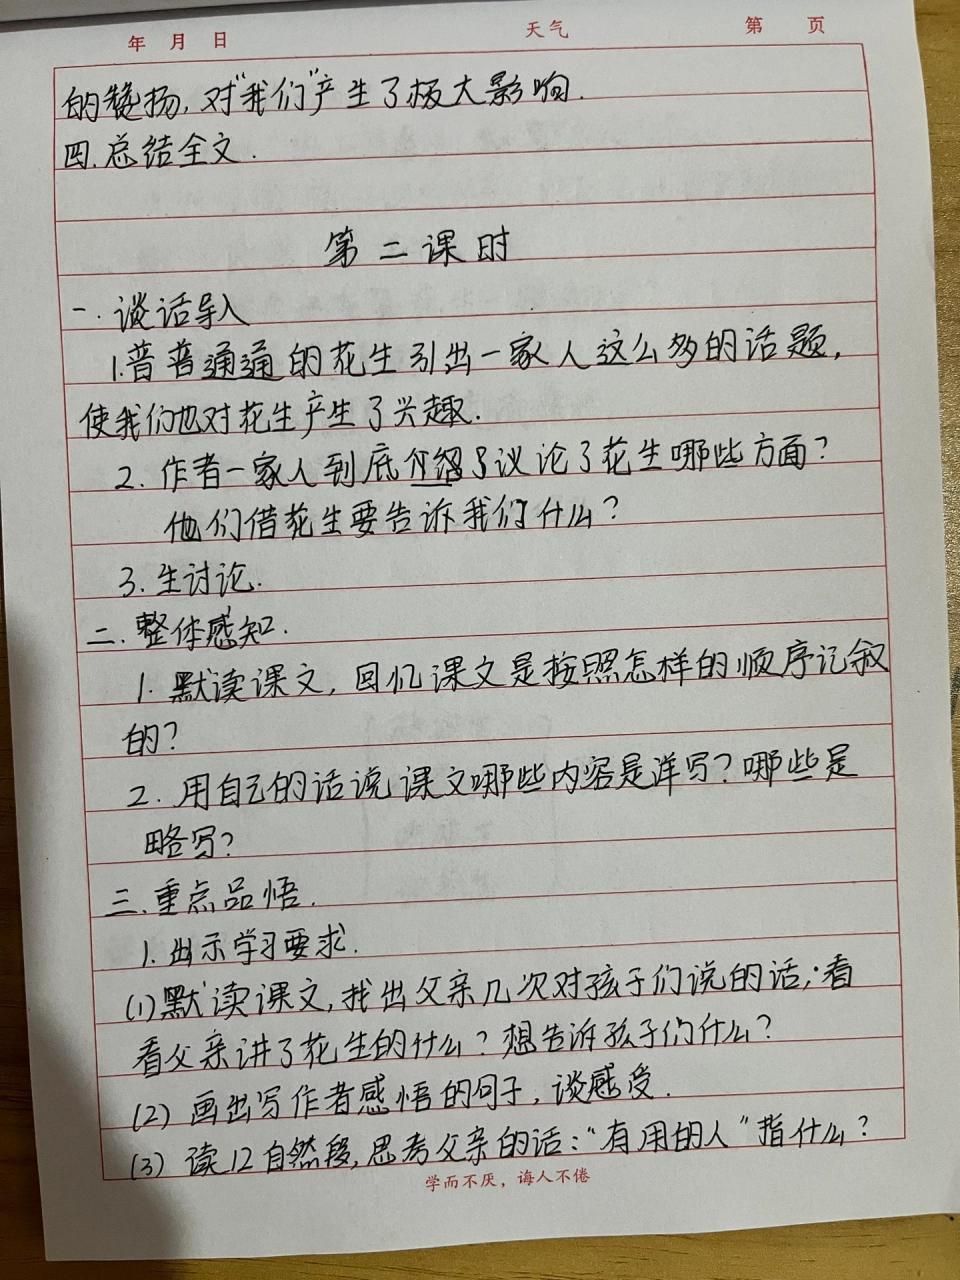 年 月 日 天气 第 页
的赞扬,对"我们"产生了极大影响.
四.总结全文.
第二课时
一.谈话导入
1.普普通通的花生引出一家人这么多的话题,
使我们也对花生产生了兴趣.
2.作者一家人到底介绍了议论了花生哪些方面?
他们借花生要告诉我们什么?
3.生讨论.
二.整体感知.
1.默读课文,回忆课文是按照怎样的顺序记叙
的?
2.用自己的话说课文哪些内容是详写?哪些是
略写?
三.重点品悟.
1.出示学习要求.
(1)默读课文,找出父亲几次对孩子们说的话,看
看父亲讲了花生的什么?想告诉孩子们什么?
(2)画出写作者感悟的句子,谈感受.
(3)读12自然段,思考父亲的话:"有用的人"指什么?
学而不厌,诲人不倦